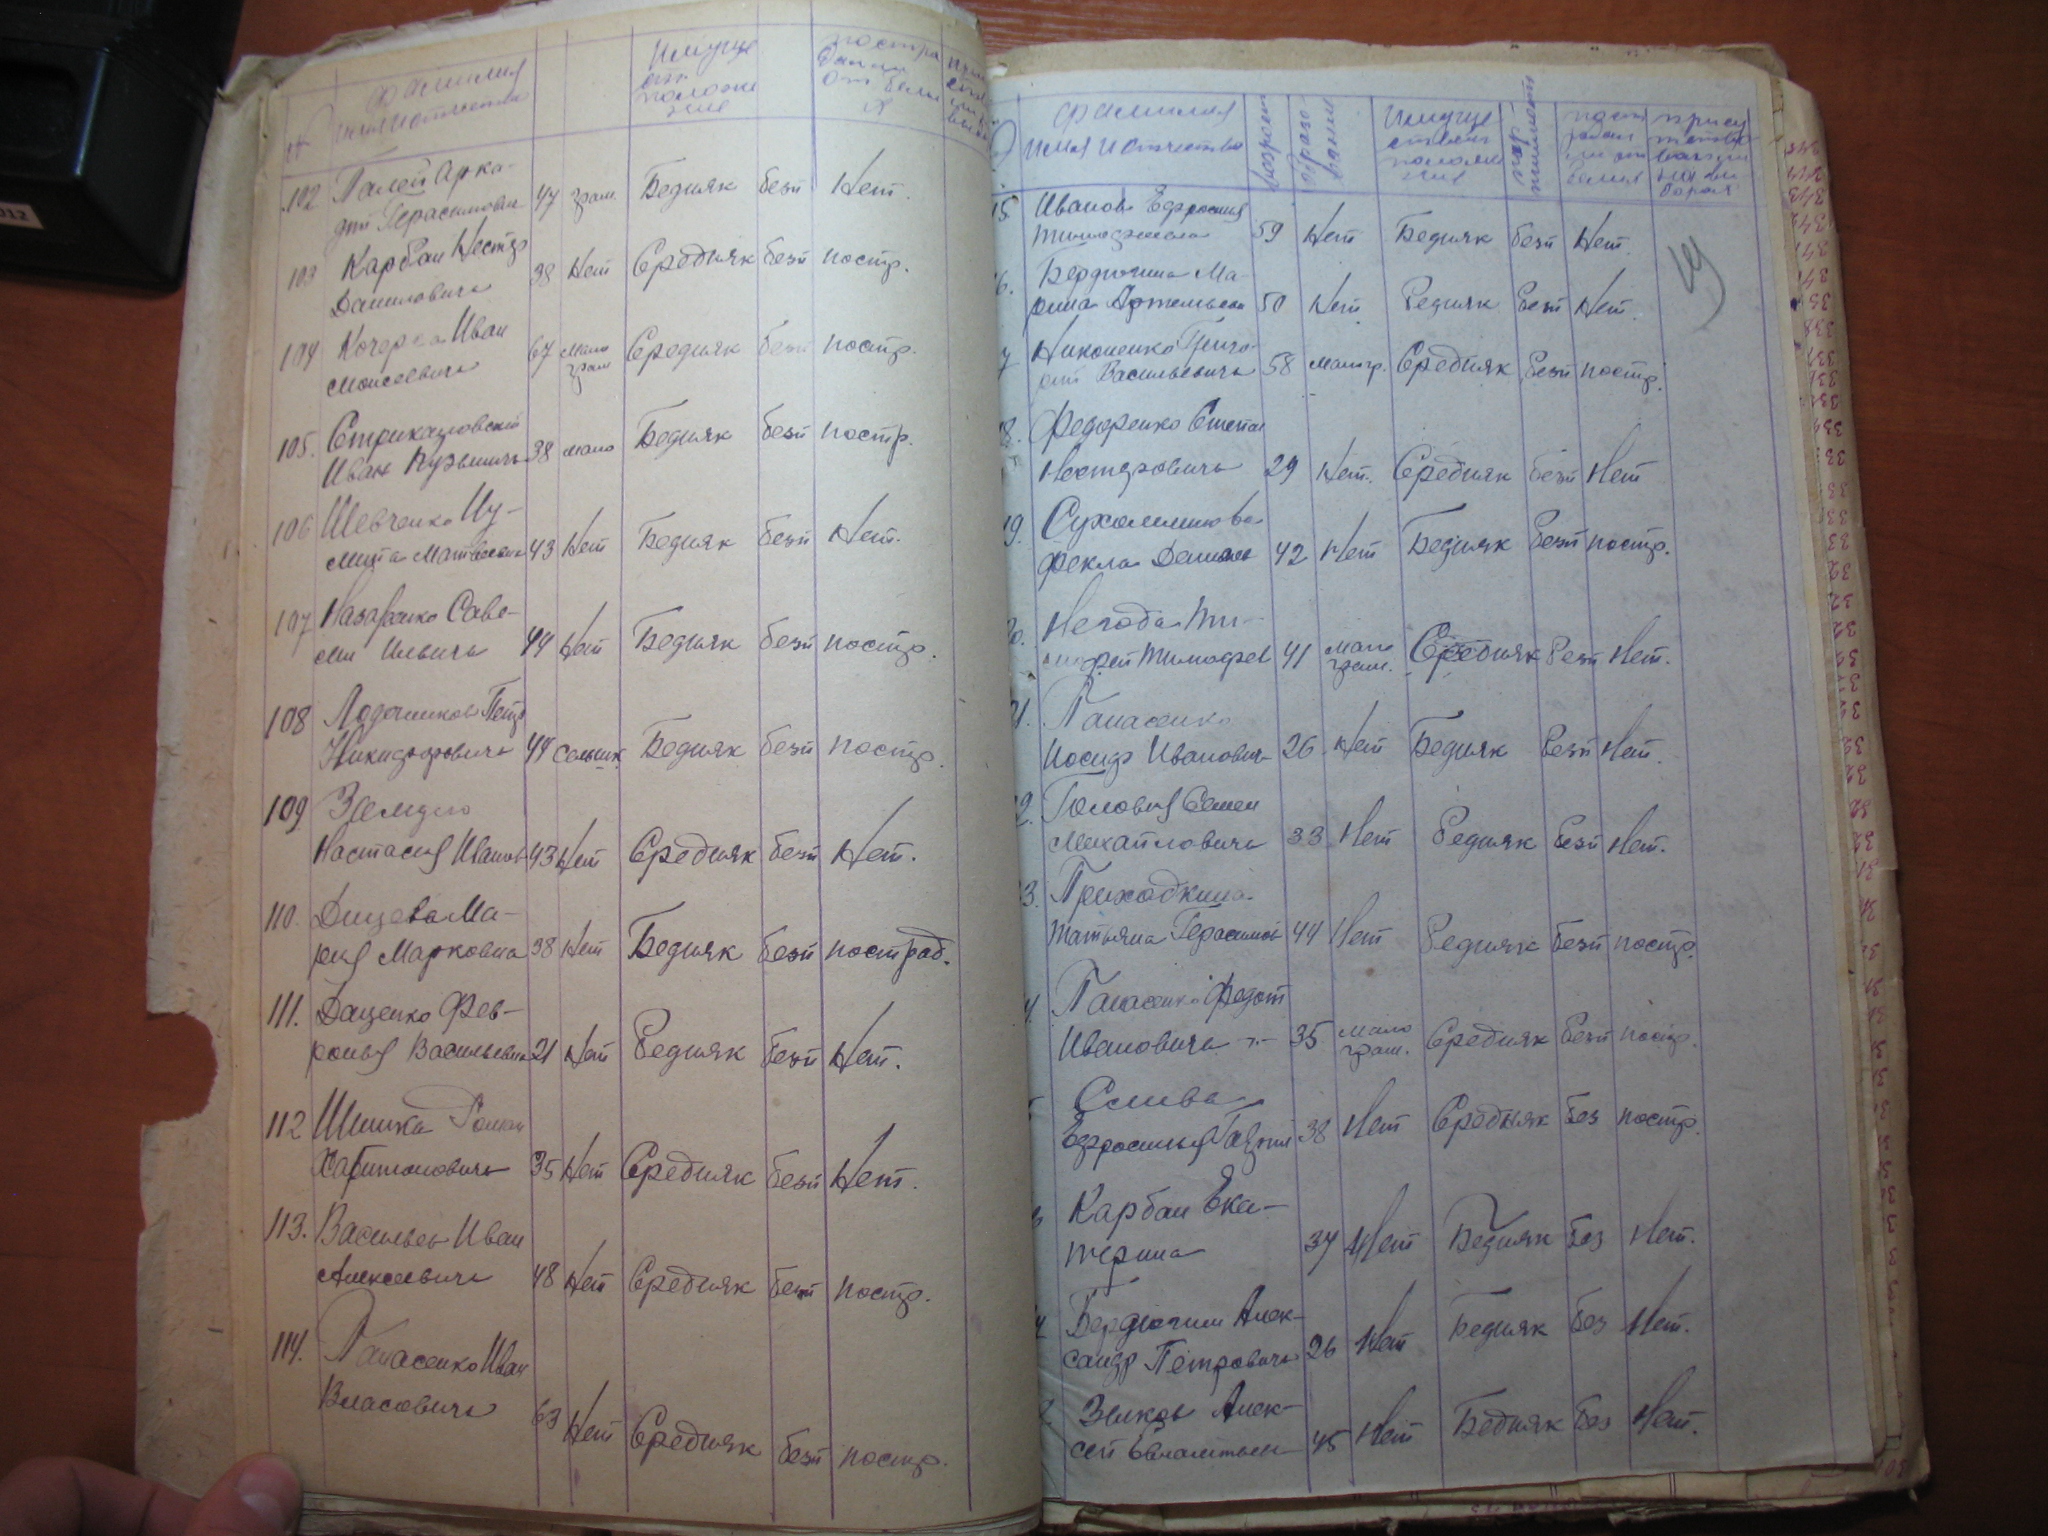 №
фамилия
имя и отчество
Имуще
ств
положе
ние
постра
давш
от белы
х
102 Галей Арка-
дий Герасимович 47 грам. Бедняк безп Нет.
103 Карбан Нестор
Данилович 38 Нет Середняк безп постр.
104 Кочерга Иван
Моисеевич 67 мало
грам Середняк безп постр.
105. Стрикаловский
Иван Кузьмич 38 мало Бедняк безп постр.
106 Шевченко
Матвеевна 43 Нет Бедняк безп Нет.
107 Назаренко Саве-
лий Ильич 44 Нет Бедняк безп постр.
108 Лодочников Петр
Никифорович 44 Бедняк безп постр.
109
Настасия Иванов 43 Нет Середняк безп Нет.
110. Ма-
рия Марковна 38 Нет Бедняк безп пострад.
111. Даценко Фев-
ронья Васильевна 21 Нет Бедняк безп Нет.
112 Шишка Роман
Харитонович 35 Нет Середняк безп Нет.
113. Васильев Иван
Алексеевич 48 Нет Середняк безп постр.
114. Панасенко Иван
Власович 63 Нет Середняк безп постр.
фамилия
имя и отчество
возраст
образо-
вание
Имуще
ствен
положе
ние
парт
тийность
19
15 Иванова Ефросиния
Тимофеевна 59 Нет Бедняк безп Нет.
6. Бердюгина Ма-
рина Артемьевна 50 Нет Бедняк безп Нет.
7 Никоненко Григо-
рий Васильевич 58 малогр. Середняк безп постр.
8. Федоренко Степан
Нестерович 29 Нет. Середняк безп Нет
9. Сухомлинова
Фекла Данилов 42 Нет Бедняк безп постр.
0. Негода Ти-
мофей Тимофеев 41 мало
грам. Середняк безп Нет.
1. Панасенко
Иосиф Иванович 26 Нет Бедняк безп Нет.
2. Головня Семен
Михайлович 33 Нет Бедняк безп Нет.
3. Приходкина
Татьяна Герасимов 44 Нет Бедняк безп постр.
4. Панасенко Федот
Иванович 35 мало
грам. Середняк безп постр.
5 Слива
Ефросинья 38 Нет Середняк без постр.
6 Карбан Ека-
терина 34 Нет Бедняк без Нет.
Бердюгин Алек-
сандр Петрович 26 Нет Бедняк без Нет.
Зыков Алек-
сей 45 Нет Бедняк без Нет.